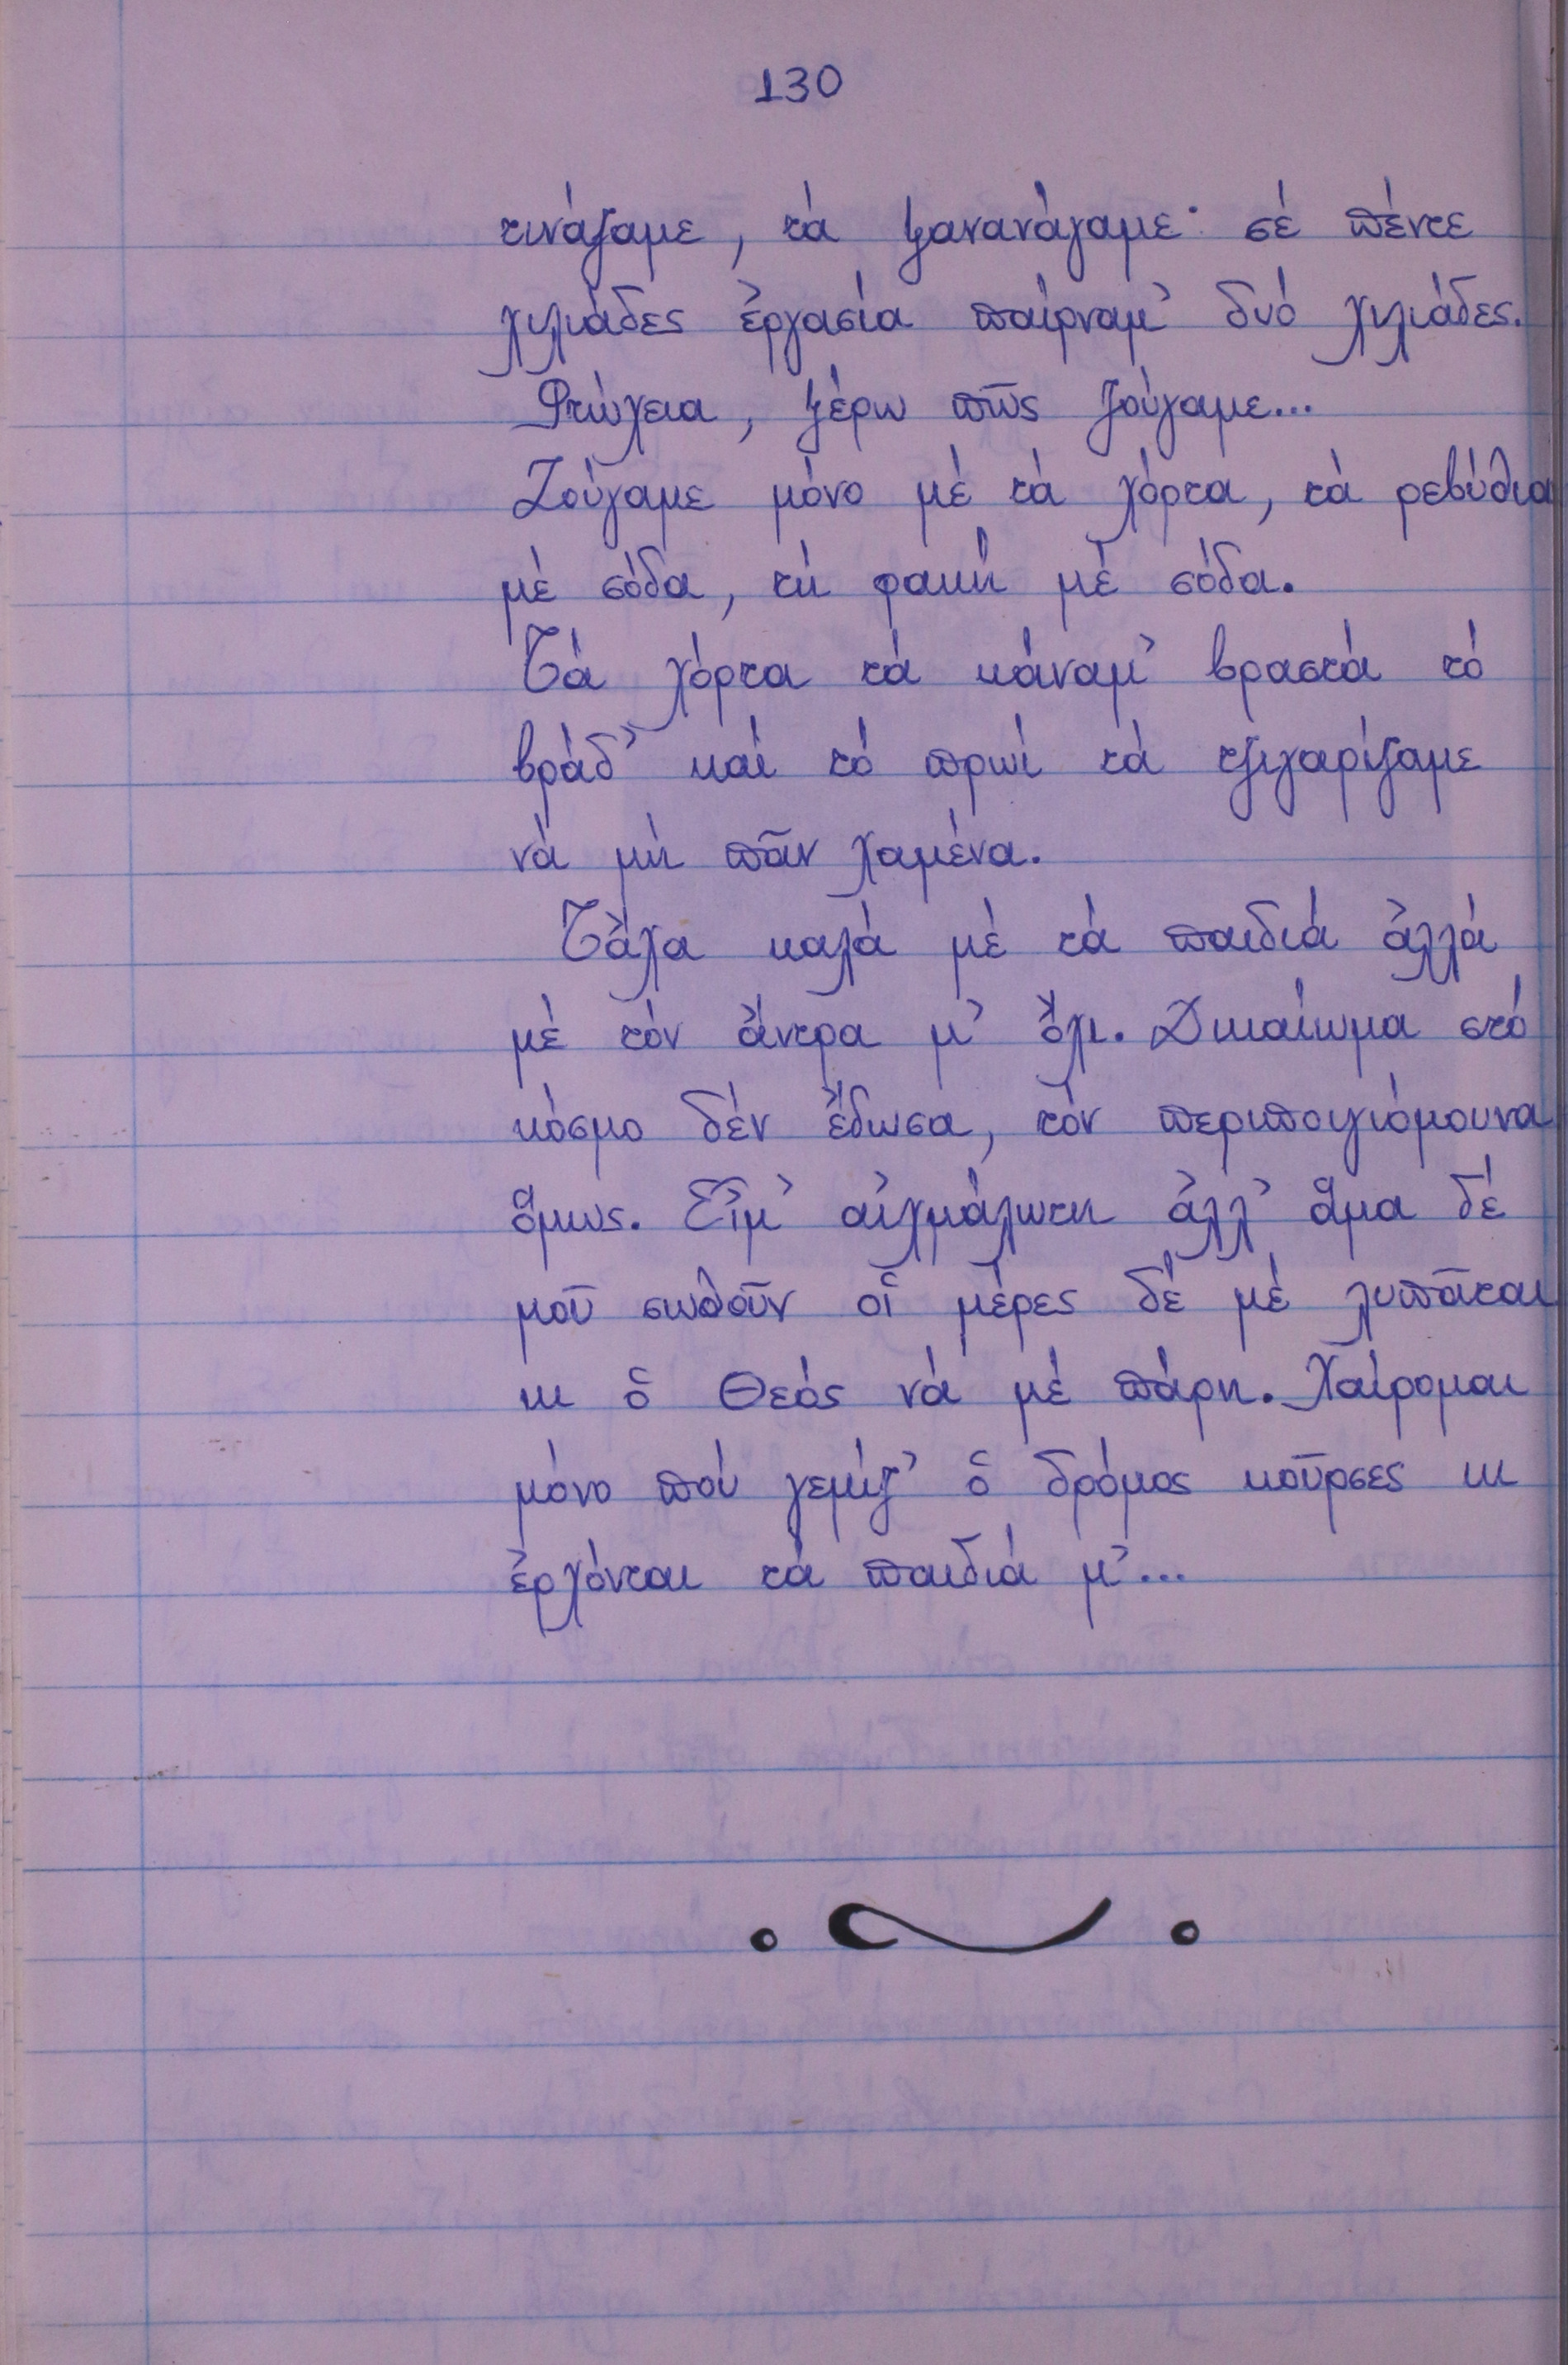 130
τινάζαμε, τά ξανανάγαμε· σέ πέντε
χιλιάδες ἐργασία παίρναμ' δυό χιλιάδες.
Φτώχεια, ξέρω πῶς ζούγαμε...
Ζούγαμε μόνο μέ τά χόρτα, τά ρεβύθια
μέ σόδα, τή φακή μέ σόδα.
Τά χόρτα τά κάναμ' βραστά τό
βράδ' καί τό πρωί τά τζιγαρίζαμε
νά μή πᾶν χαμένα.
Τἄχα καλά μέ τά παιδιά ἀλλά
μέ τόν ἄντρα μ' ὄχι. Δικαίωμα στό
κόσμο δέν ἔδωσα, τόν περιποιγιόμουνα
ὅμως. Εἶμ' αἰχμάλωτη ἀλλ' ἅμα δέ
μοῦ σωθοῦν οἱ μέρες δέ μέ λυπᾶται
κι ὁ Θεός νά μέ πάρη. Χαίρομαι
μόνο πού γεμίζ' ὁ δρόμος κοῦρσες κι
ἐρχόνται τά παιδιά μ'...